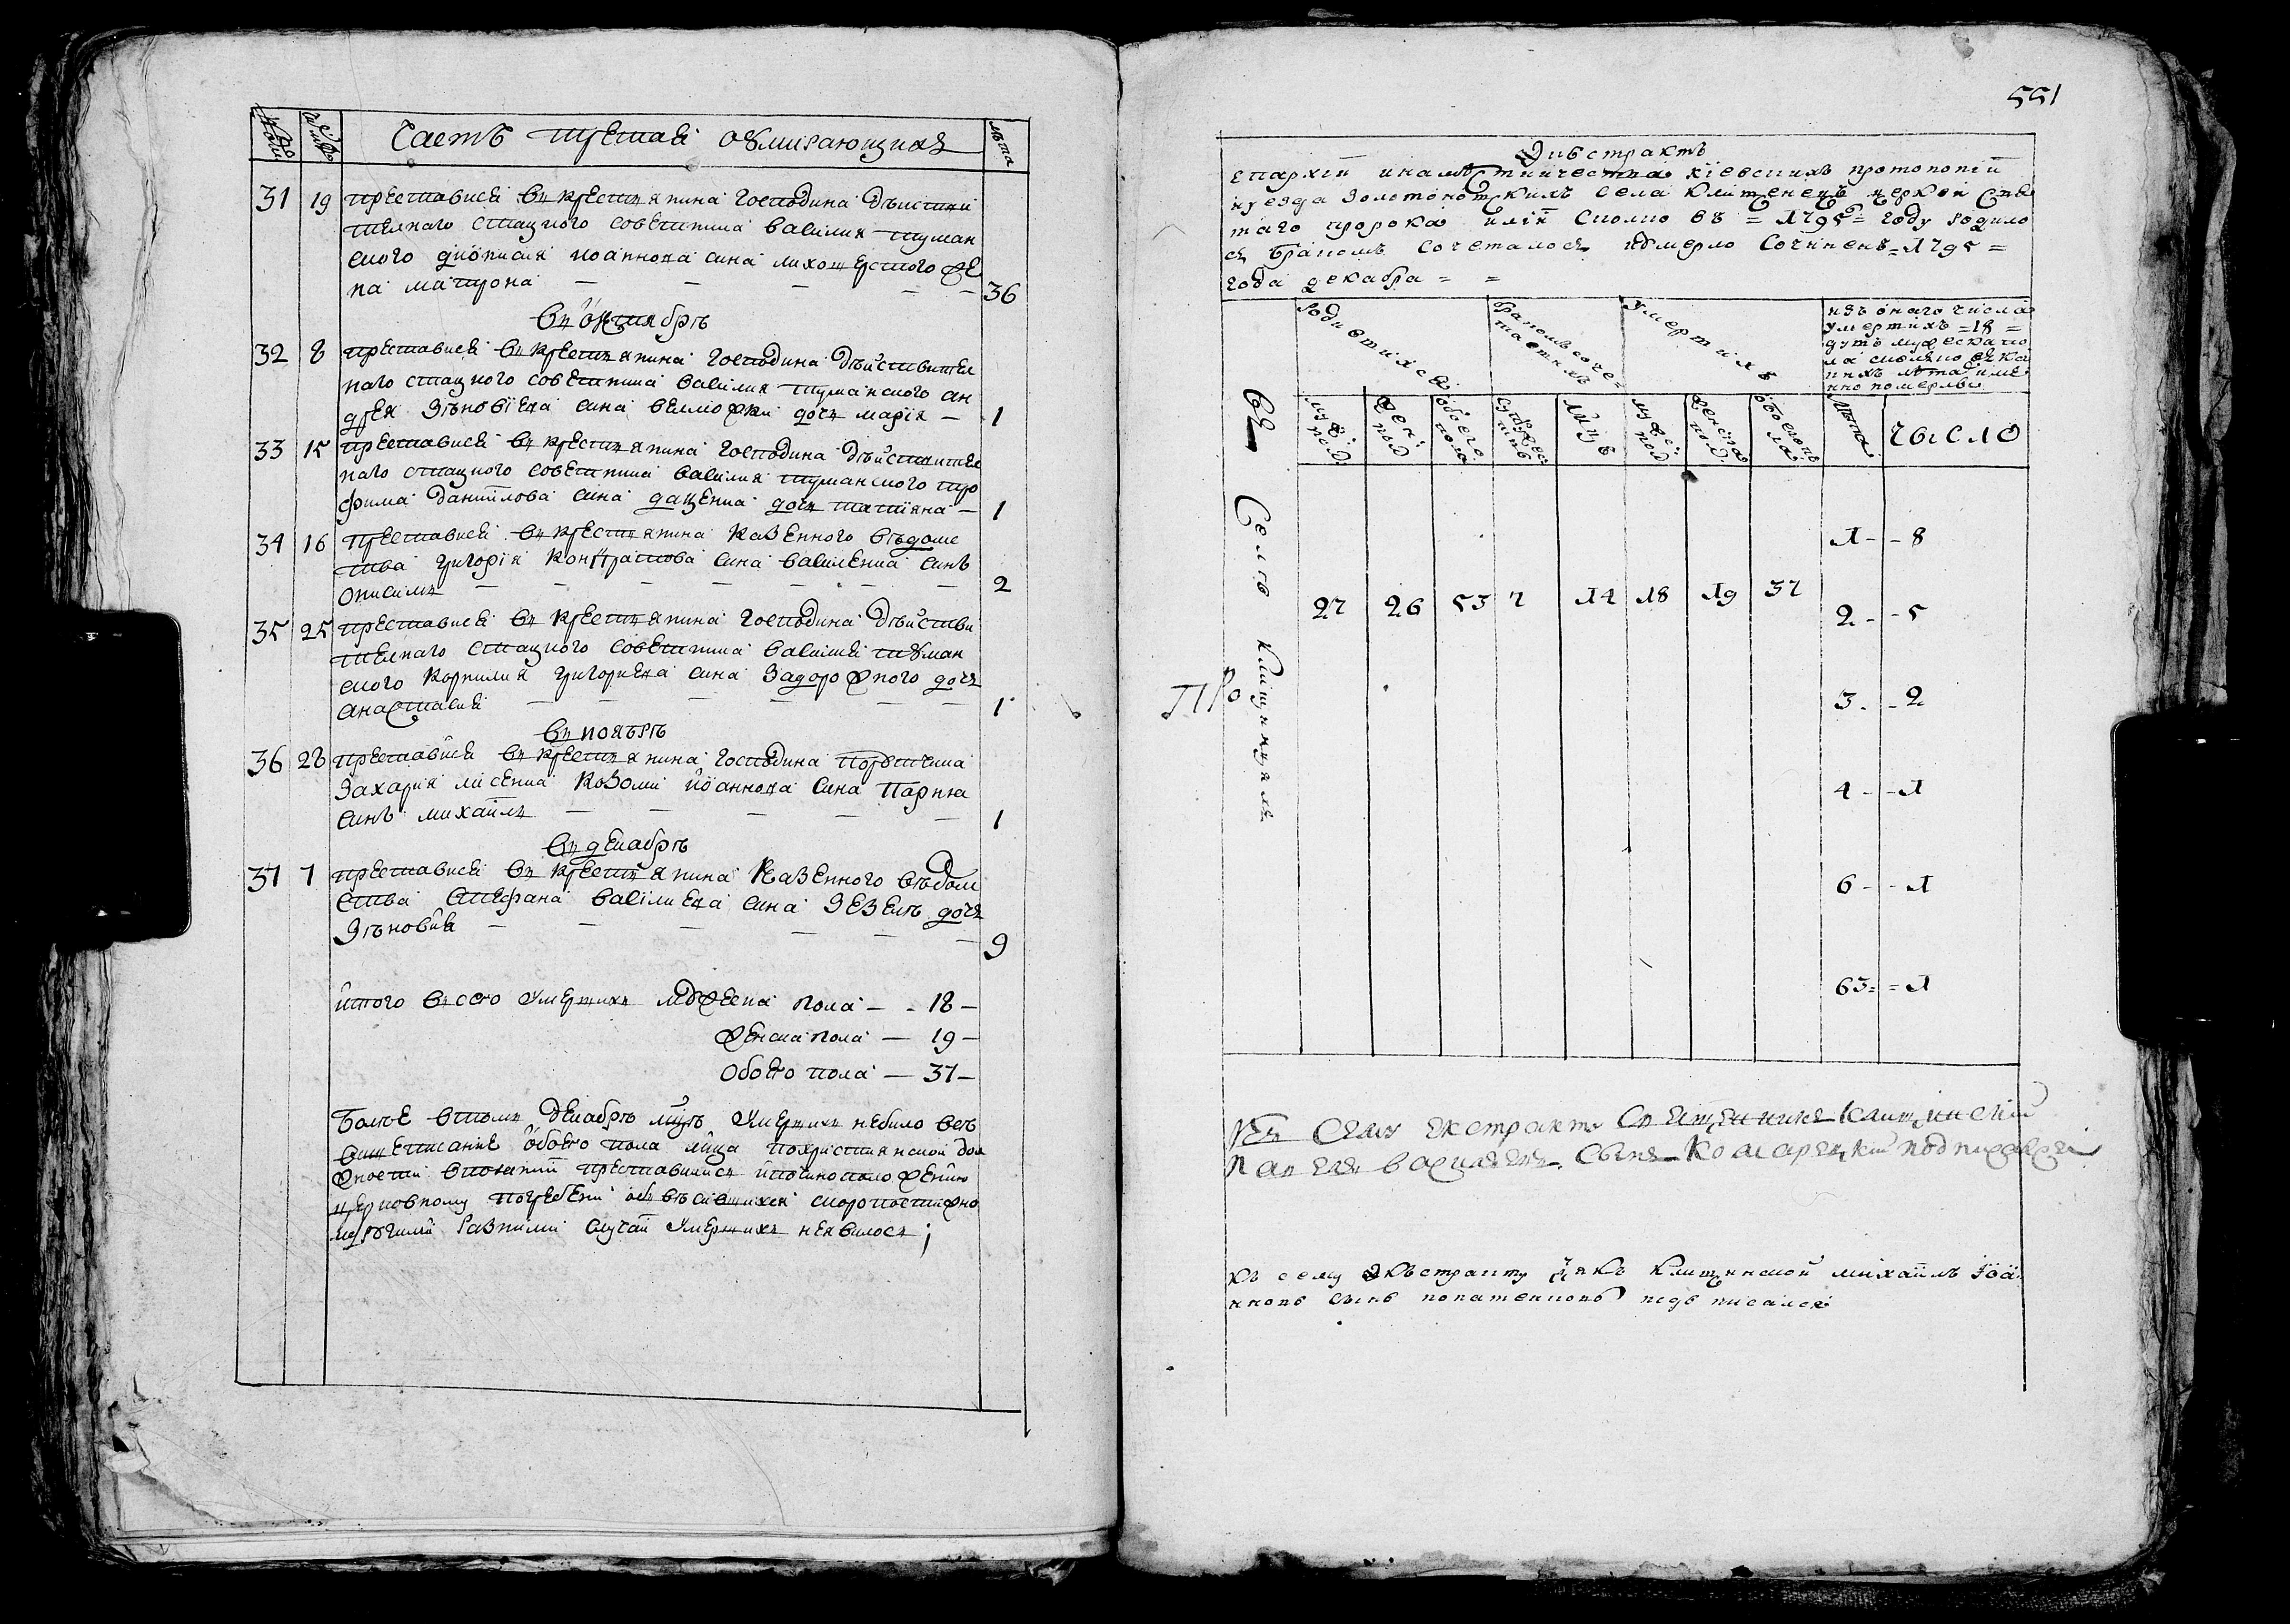 Часть третая о умирающихъ
лѣта
31 19 преставися въ крестянина господина дѣистви
телнаго стацкого советника василия туман
ского дионисия иоаннова сина лихошерстого же
на матрона — — — — — 36
въ октябрѣ
32 8 преставися въ крестянина господина дѣйствител
наго стацкого советника василия туманского ан
дрея зѣновїева сина велможки дочь марїя — 1
33 15 преставися въ крестянина господина дѣйствител
наго стацкого советника василия туманского тро
фима данїилова сина даценка дочь татїяна — 1
34 16 преставися въ крестянина казенного вѣдомс
тва григорїя кондратова сина василенка синъ
онисимъ — — — — — — 2
35 25 преставися въ крестянина господина дѣйстви
телнаго стацкого советника василия туман
ского корнилия григориева сина задорожного дочь
анастасия — — — — — 1
въ ноябрѣ
36 28 преставися въ крестянина господина порутчика
захария лисенка козми иоаннова сина парнюка
синъ михаилъ — — — — — 1
въ декабрѣ
37 7 преставися въ крестянина казенного вѣдом
ства стефана василиева сина зезекъ дочь
зѣновия — — — — — — 9
итого всего умершихъ мужеска пола — - 18 —
женска пола — 19 —
обоего пола — 37 —
Болѣе втомъ декабрѣ умершихъ небило все
вишеписание обоего пола лица похристиянской дол
жности преставилися иточноположению
церковному погребени скоропостижно
разними случаи умершихъ неявилось;
551
Экстрактъ
епархїи инамѣстничества кїевскихъ протопопїи
иуезда золотонотскихъ села клищенецъ церкви свя
таго пророка илїи сколко въ = 1795 = году родило
ся бракомъ сочеталося иумерло сочиненъ = 1795 =
года декабра = =
Родившихся
Бракомъ сочетавшихъ
Умершихъ
изъ оного числа
умершихъ = 18 =
мужеска по
ла сколко въ ка
кихъ лѣта име
нно померлы
муж: пол:
жен: пол:
обоего пола
лицъ
лѣта
число
въ Селѣ Клищинцяхъ
27 26 53 7 14 18 19 37
1 - - 8
2 - - 5
3 - - 2
4 - - 1
6 - - 1
63 = = 1
Про
Къ сему екстракту Священникъ Клищинский
Павелъ Василиевъ Сынъ Комарецкий подписался
къ сему экъстракту дякъ клищинской михаилъ їоа
нновъ сынъ подъ писался